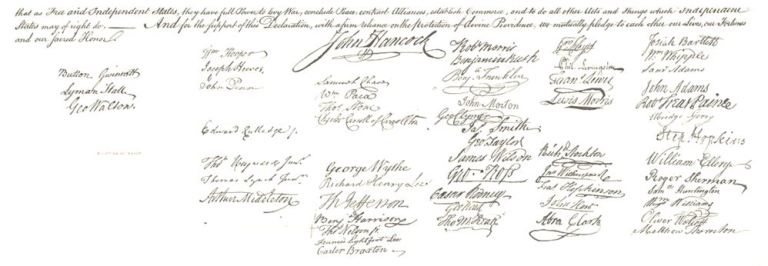 that as Free and Independent States, they have full Power to levy War, conclude Peace, contract Alliances, establish Commerce, and to do all other Acts and Things which Independent
States may of right do. And for the support of this Declaration, with a firm reliance on the protection of divine Providence, we mutually pledge to each other our Lives, our Fortunes
and our sacred Honor.
Button Gwinnett
Lyman Hall
Geo Walton.
Wm Hooper
Joseph Hewes,
John Penn
Edward Rutledge
Thos Heyward Junr.
Thomas Lynch Junr.
Arthur Middleton
John Hancock
Samuel Chase
Wm Paca
Thos Stone
Charles Carroll of Carrollton
George Wythe
Richard Henry Lee
Th Jefferson
Benj Harrison
Thos Nelson jr.
Francis Lightfoot Lee
Carter Braxton
Robt Morris
Benjamin Rush
Benj Franklin
John Morton
Geo Clymer
Jas Smith
Geo Taylor
James Wilson
Geo Ross
Caesar Rodney
Geo Read
Tho M:Kean
Phil Livingston
Frans Lewis
Lewis Morris
Richd Stockton
Jno Witherspoon
Fras Hopkinson
John Hart
Abra Clark
Josiah Bartlett
Wm Whipple
Saml Adams
John Adams
Robt Treat Paine
Elbridge Gerry
Step Hopkins
William Ellery
Roger Sherman
Saml Huntington
Wm Williams
Oliver Wolcott
Matthew Thornton